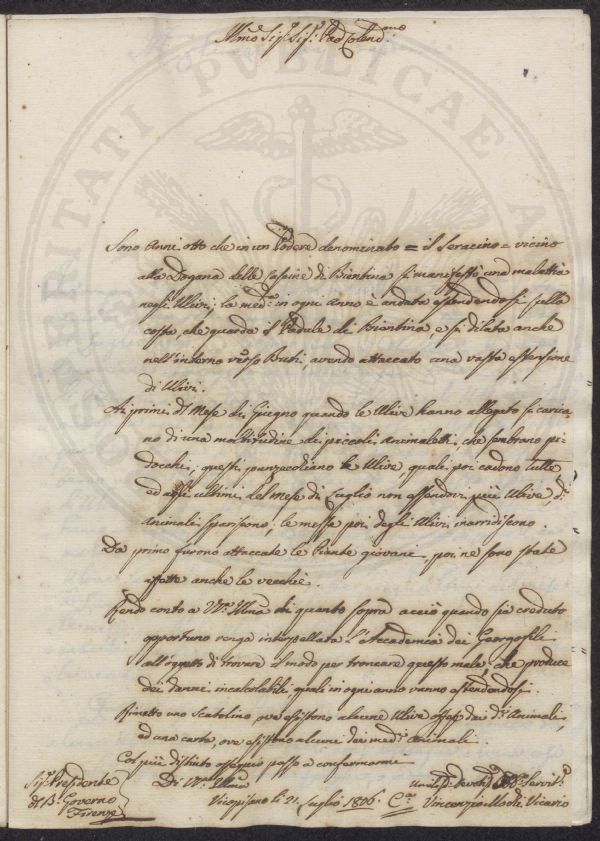 Illmo Sigr. Sigr. Pad. Colendmo
Sono Anni otto che in un Podere denominato = il Seracino = vicino
alla Dogana delle Cassine di Bientina si manifestò una malattia
negli Ulivi; la med.a in ogni Anno è andata estendendosi sulla
costa, che guarda il Padule di Bientina, e si dilata anche
nell'interno verso Buti, avendo attaccato una vasta estensione
di Ulivi.
Ai primi d. Mese di Giugno quando le Ulive hanno allegato si carica
no di una moltitudine di piccoli Animaletti, che sembrano pi
docchi; questi punzecchiano le Ulive, quali poi cadono tutte
ed agli ultimi del Mese di Luglio non essendovi più Ulive, d.i
Animali spariscono; le messe poi degli Ulivi inaridiscono.
Da primo furono attaccate le Piante giovani, poi ne sono state
affette anche le vecchie.
Rendo conto a V.S. Illma di quanto sopra acciò quando sia creduto
opportuno venga interpellata l'Accademia dei Georgofili
all'oggetto di trovare il modo per troncare questo male, che produce
dei danni incalcolabili, quali in ogni anno vanno estendendosi.
Rimetto uno Scatolino, ove esistono alcune Ulive offese dai d.i Animali,
ed una carta, ove esistono alcuni dei med.i Animali.
Col più distinto ossequio passo a confermarmi
Di V.S. Illma
Sigr. Presidente
del B. Governo
Firenze
Vicopisano li 21. Luglio 1806.
Servit.e
Vincenzio Vicario
SEBRITATI PUBLICAE